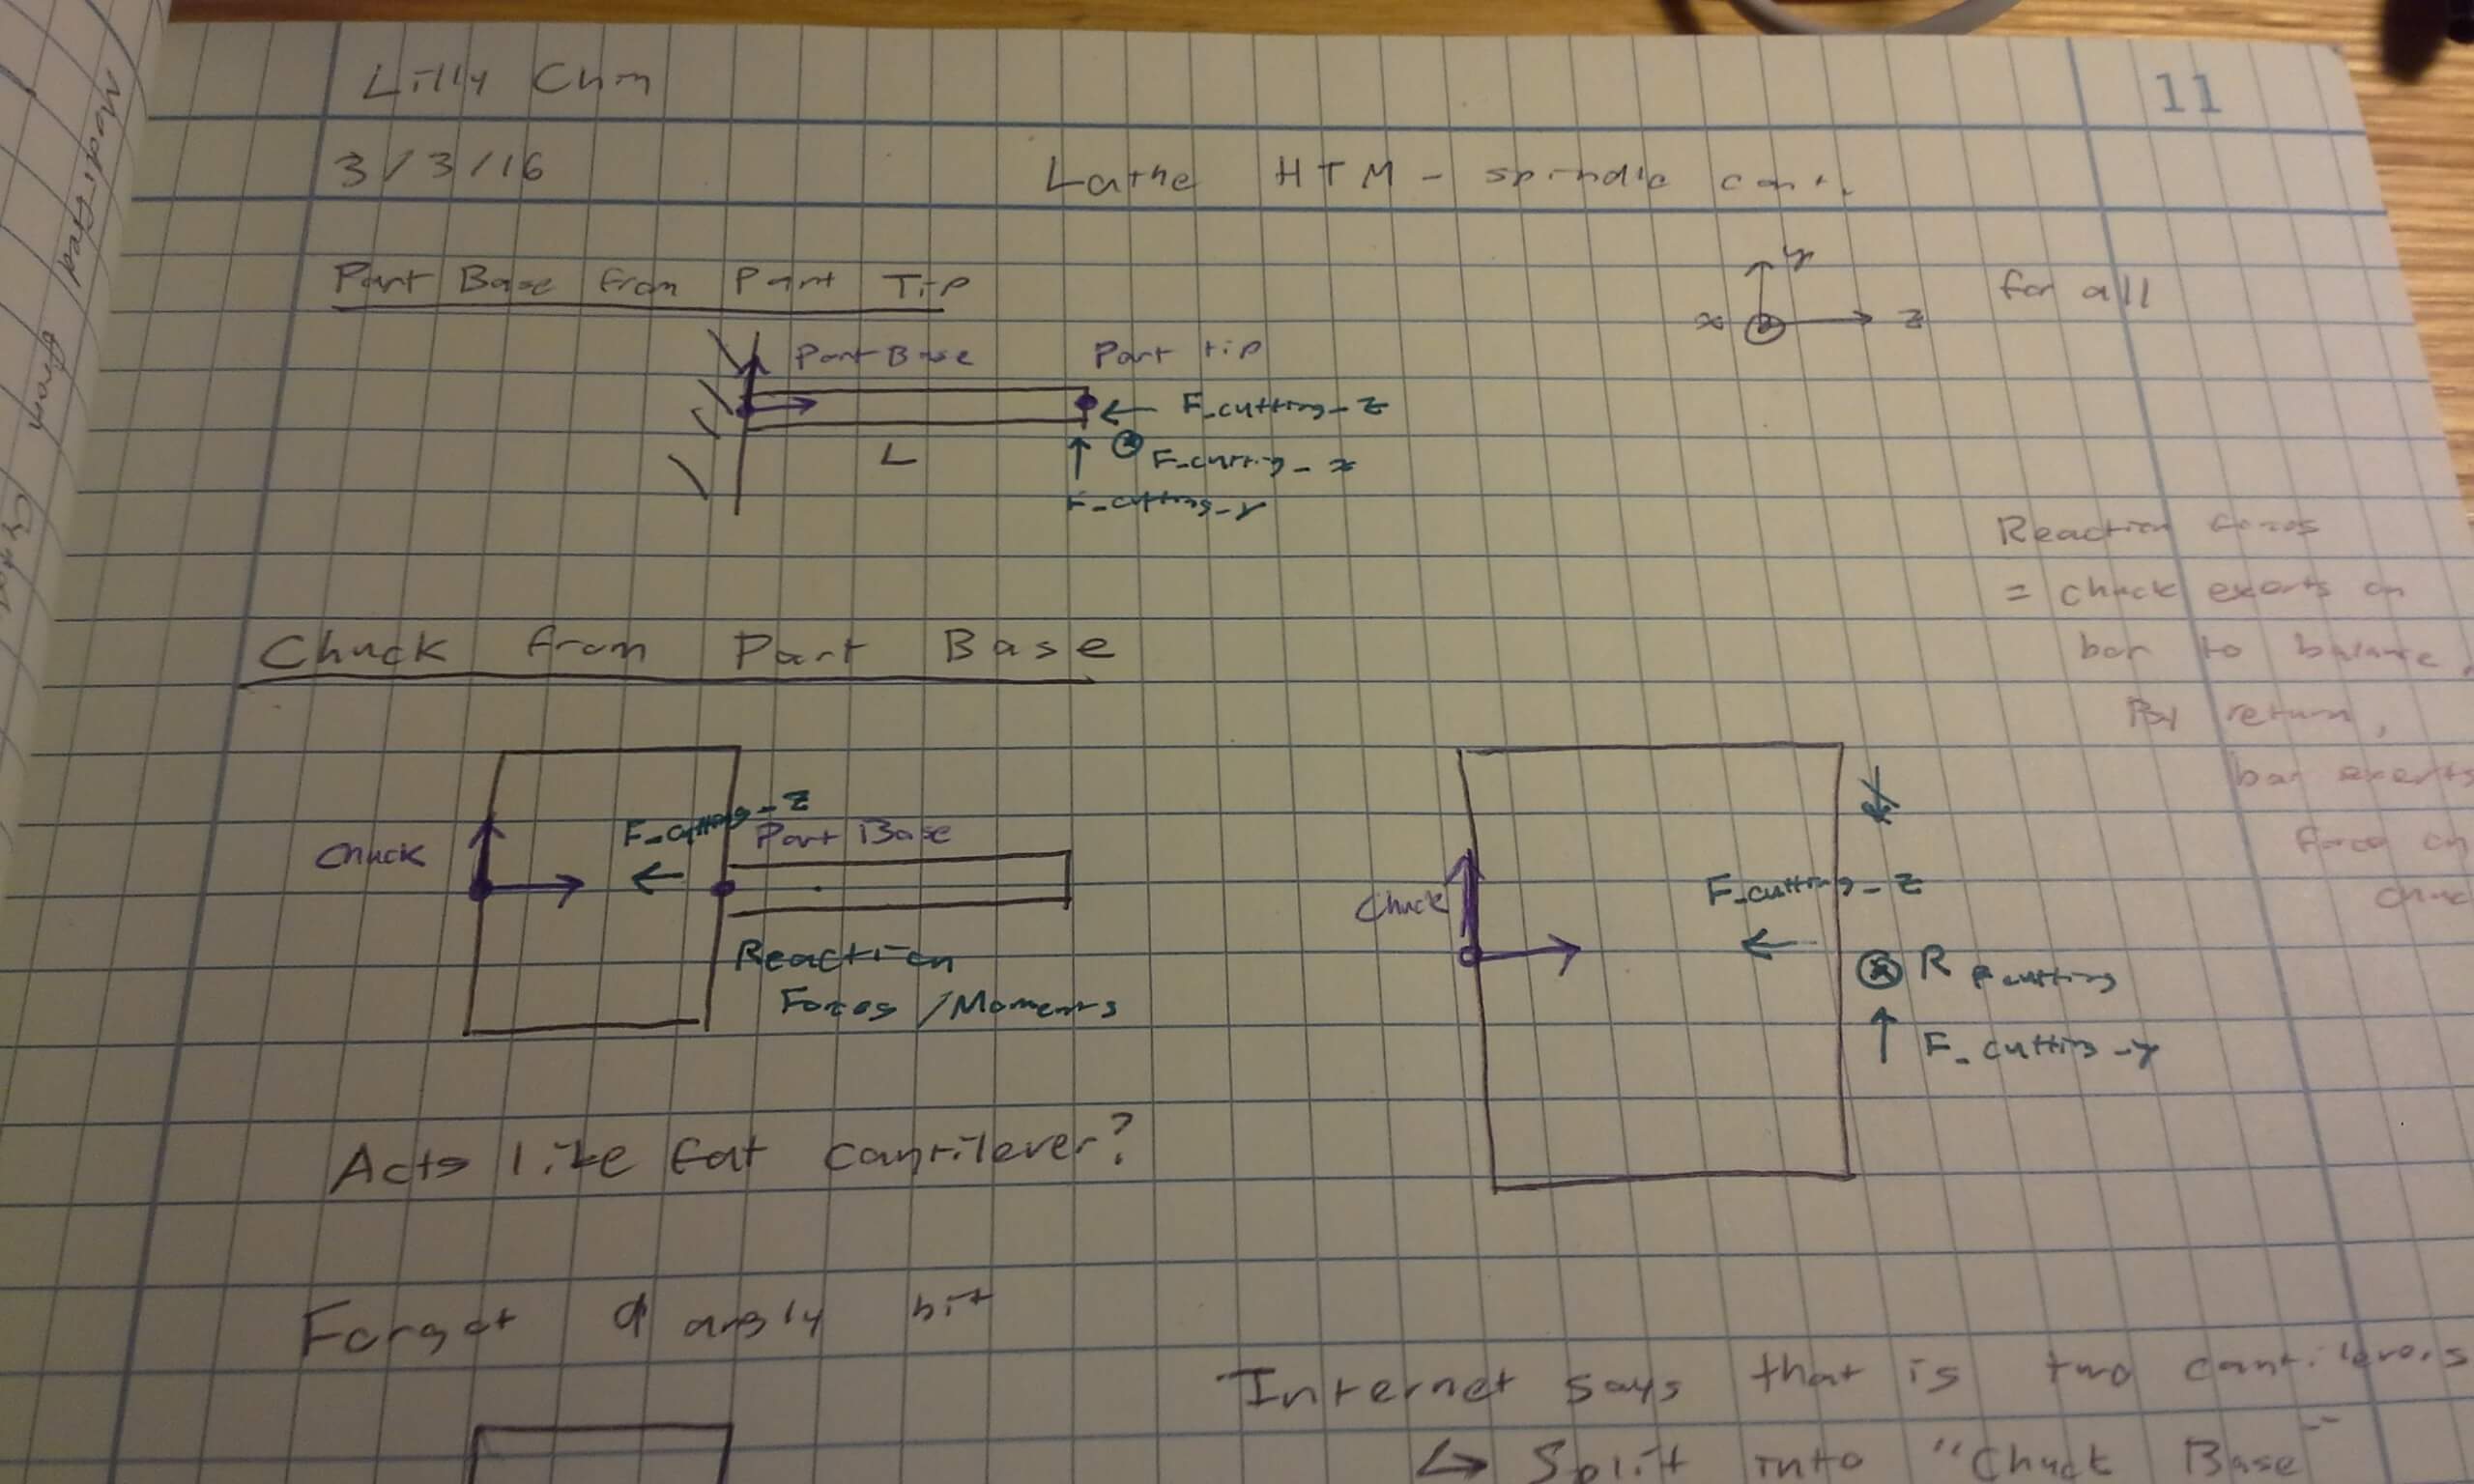 Lilly Chin
11
3/3/16
Lathe HTM - spindle cont.
Part Base from Part Tip
y
x
z
for all
Part Base
Part tip
F_cutting_z
L
F_cutting_x
F_cutting_y
Reaction forces
= chuck exerts on
bar to balance.
By return,
bar exerts
force on
Chuck from Part Base
F_cutting_z
Part Base
Chuck
Reaction
Forces / Moments
F_cutting_z
Chuck
R
F_cutting_y
Acts like fat cantilever?
Forget
bit
Internet says that is two cantilevers
↳ Split into "Chuck Base"